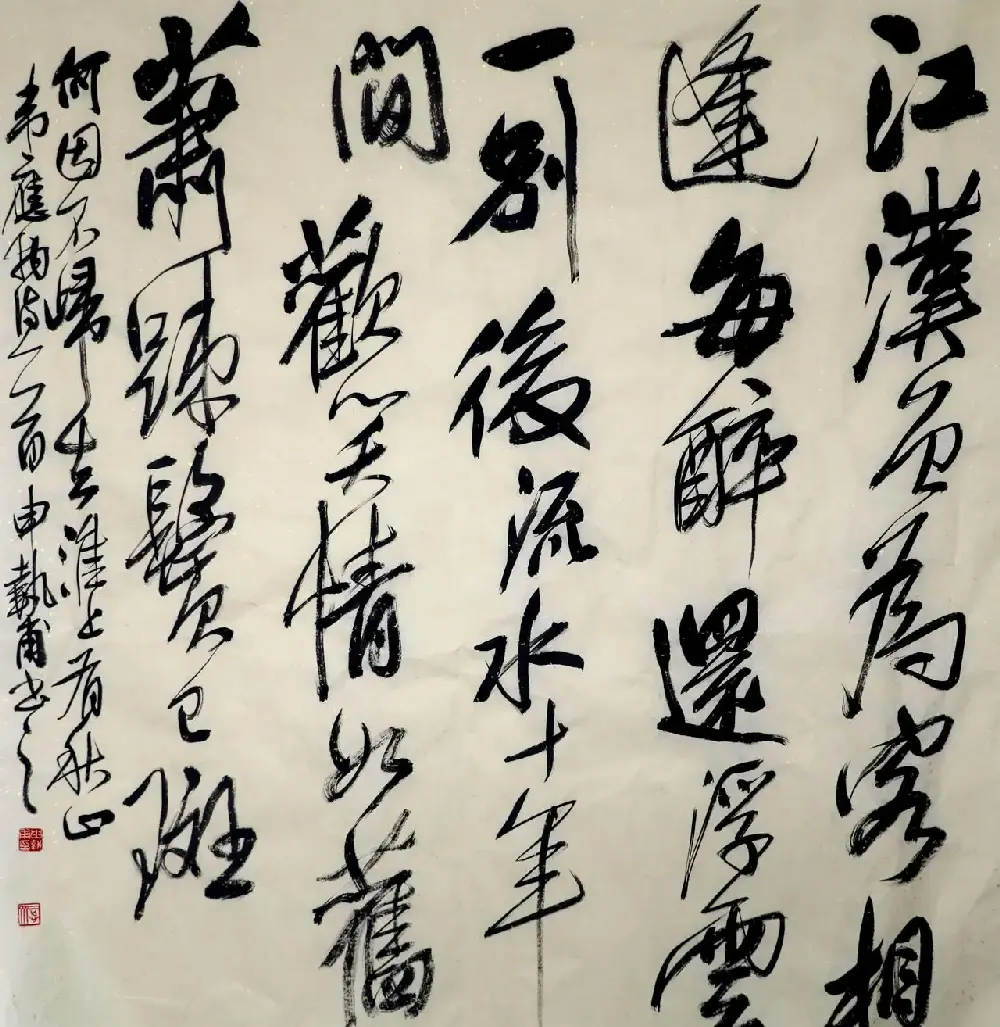 江漢曾為客相
逢每醉還浮雲
一別後流水十年
間歡笑情如舊
蕭踈鬢已斑
何因不歸去淮上有秋山
韋應物詩一首申執甫書之